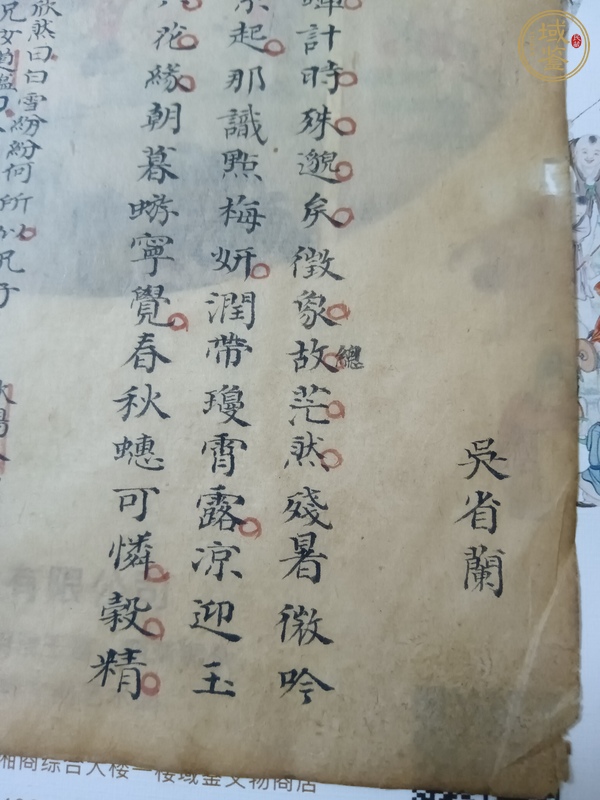 吳省蘭
計時殊邈矣徵象故總茫然殘暑微吟
起那識點梅妍潤帶瓊霄露凉迎玉
花緣朝暮嬉寧覺春秋蟪可憐穀精
欣然曰白雪紛紛何所似兄子
兄女
有限公司
湘商综合大楼一楼域鉴文物商店
域鉴